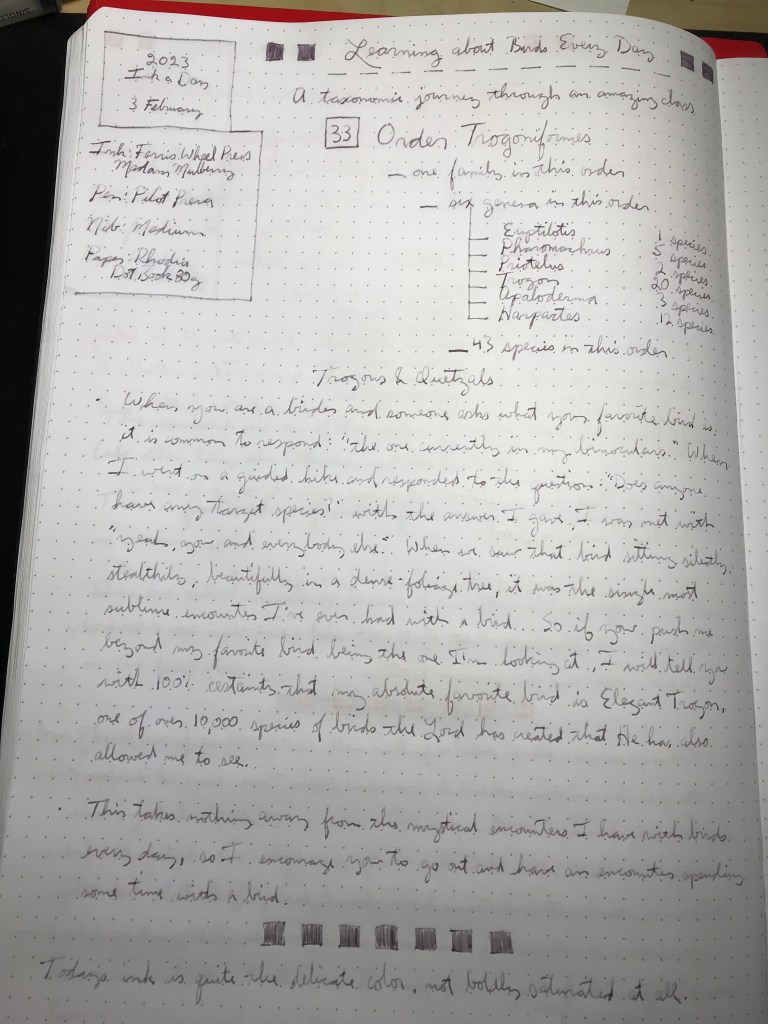 SINGLE
2023
Ink a Day
3 February
Ink: Ferris Wheel Press
Madam Mulberry
Pen: Pilot Prera
Nib: Medium
Paper: Rhodia
Dot Book 80g
Learning about Birds Every Day
A taxonomic journey through an amazing class
33 Order Trogoniformes
— one family in this order
— six genera in this order
Euptilotis 1 species
Pharomachrus 5 species
Priotelus 2 species
Trogon 20 species
Apaloderma 3 species
Harpactes 12 species
— 43 species in this order
Trogons & Quetzals
· When you are a birder and someone asks what your favorite bird is
it is common to respond: "the one currently in my binoculars." When
I went on a guided hike and responded to the question: "Does anyone
have any target species?" with the answer I gave, I was met with
"yeah, you and everybody else." When we saw that bird sitting silently,
stealthily, beautifully in a dense-foliage tree, it was the single most
sublime encounter I've ever had with a bird. So if you push me
beyond my favorite bird being the one I'm looking at, I will tell you
with 100% certainty that my absolute favorite bird is Elegant Trogon,
one of over 10,000 species of birds the Lord has created that He has also
allowed me to see.
· This takes nothing away from the mystical encounters I have with birds
every day, so I encourage you to go out and have an encounter spending
some time with a bird.
Todays ink is quite the delicate color, not boldly saturated at all.